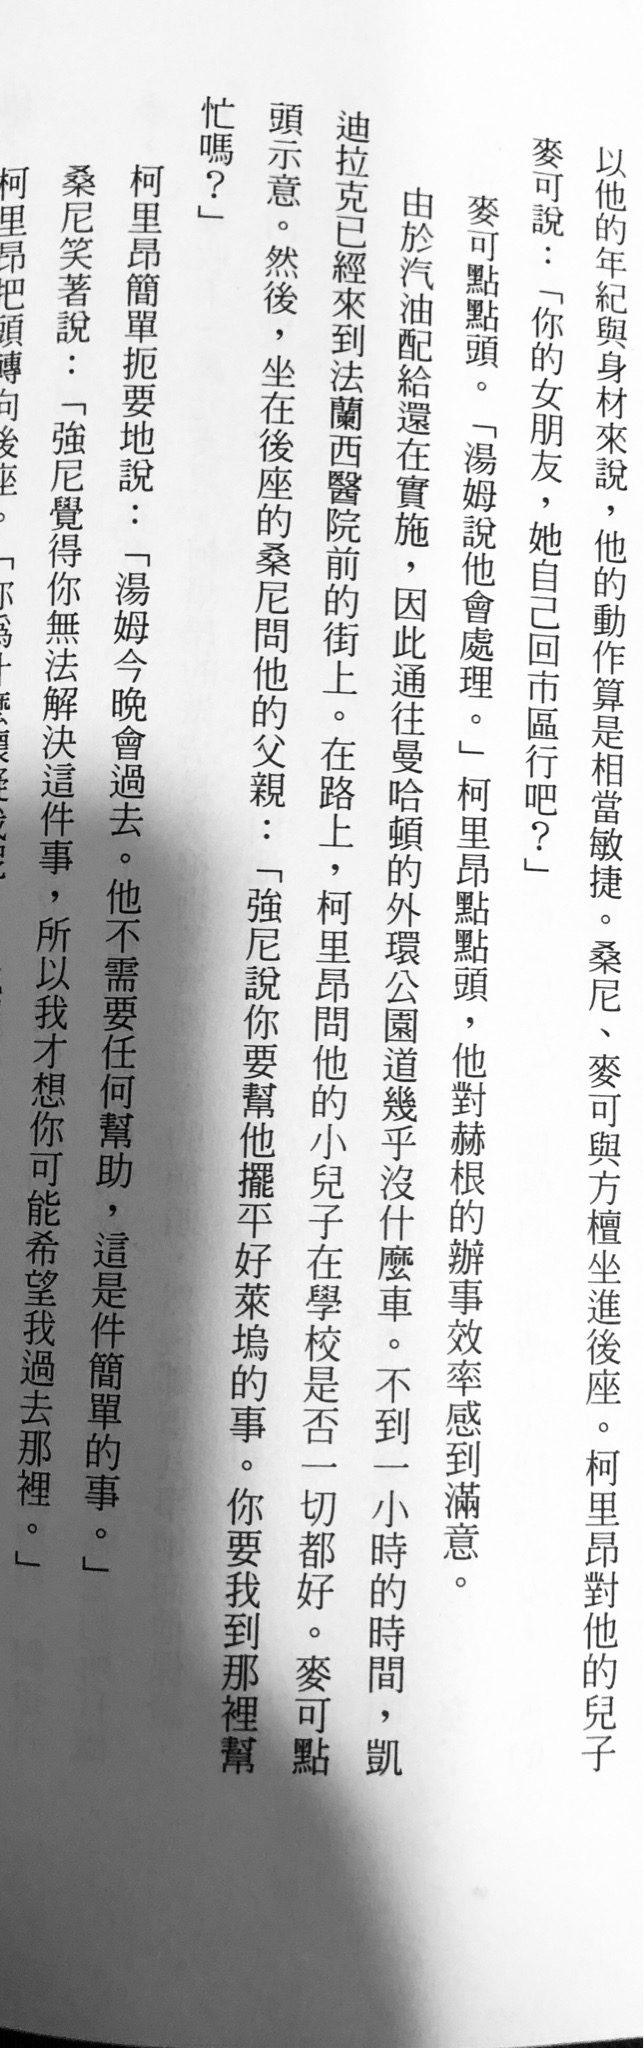 以他的年紀與身材來說，他的動作算是相當敏捷。桑尼、麥可與方檀坐進後座。柯里昂對他的兒子
麥可說：「你的女朋友，她自己回市區行吧？」
麥可點點頭。「湯姆說他會處理。」柯里昂點點頭，他對赫根的辦事效率感到滿意。
由於汽油配給還在實施，因此通往曼哈頓的外環公園道幾乎沒什麼車。不到一小時的時間，凱
迪拉克已經來到法蘭西醫院前的街上。在路上，柯里昂問他的小兒子在學校是否一切都好。麥可點
頭示意。然後，坐在後座的桑尼問他的父親：「強尼說你要幫他擺平好萊塢的事。你要我到那裡幫
忙嗎？」
柯里昂簡單扼要地說：「湯姆今晚會過去。他不需要任何幫助，這是件簡單的事。」
桑尼笑著說：「強尼覺得你無法解決這件事，所以我才想你可能希望我過去那裡。」
柯里昂把頭轉向後座。「你為什麼懷疑我